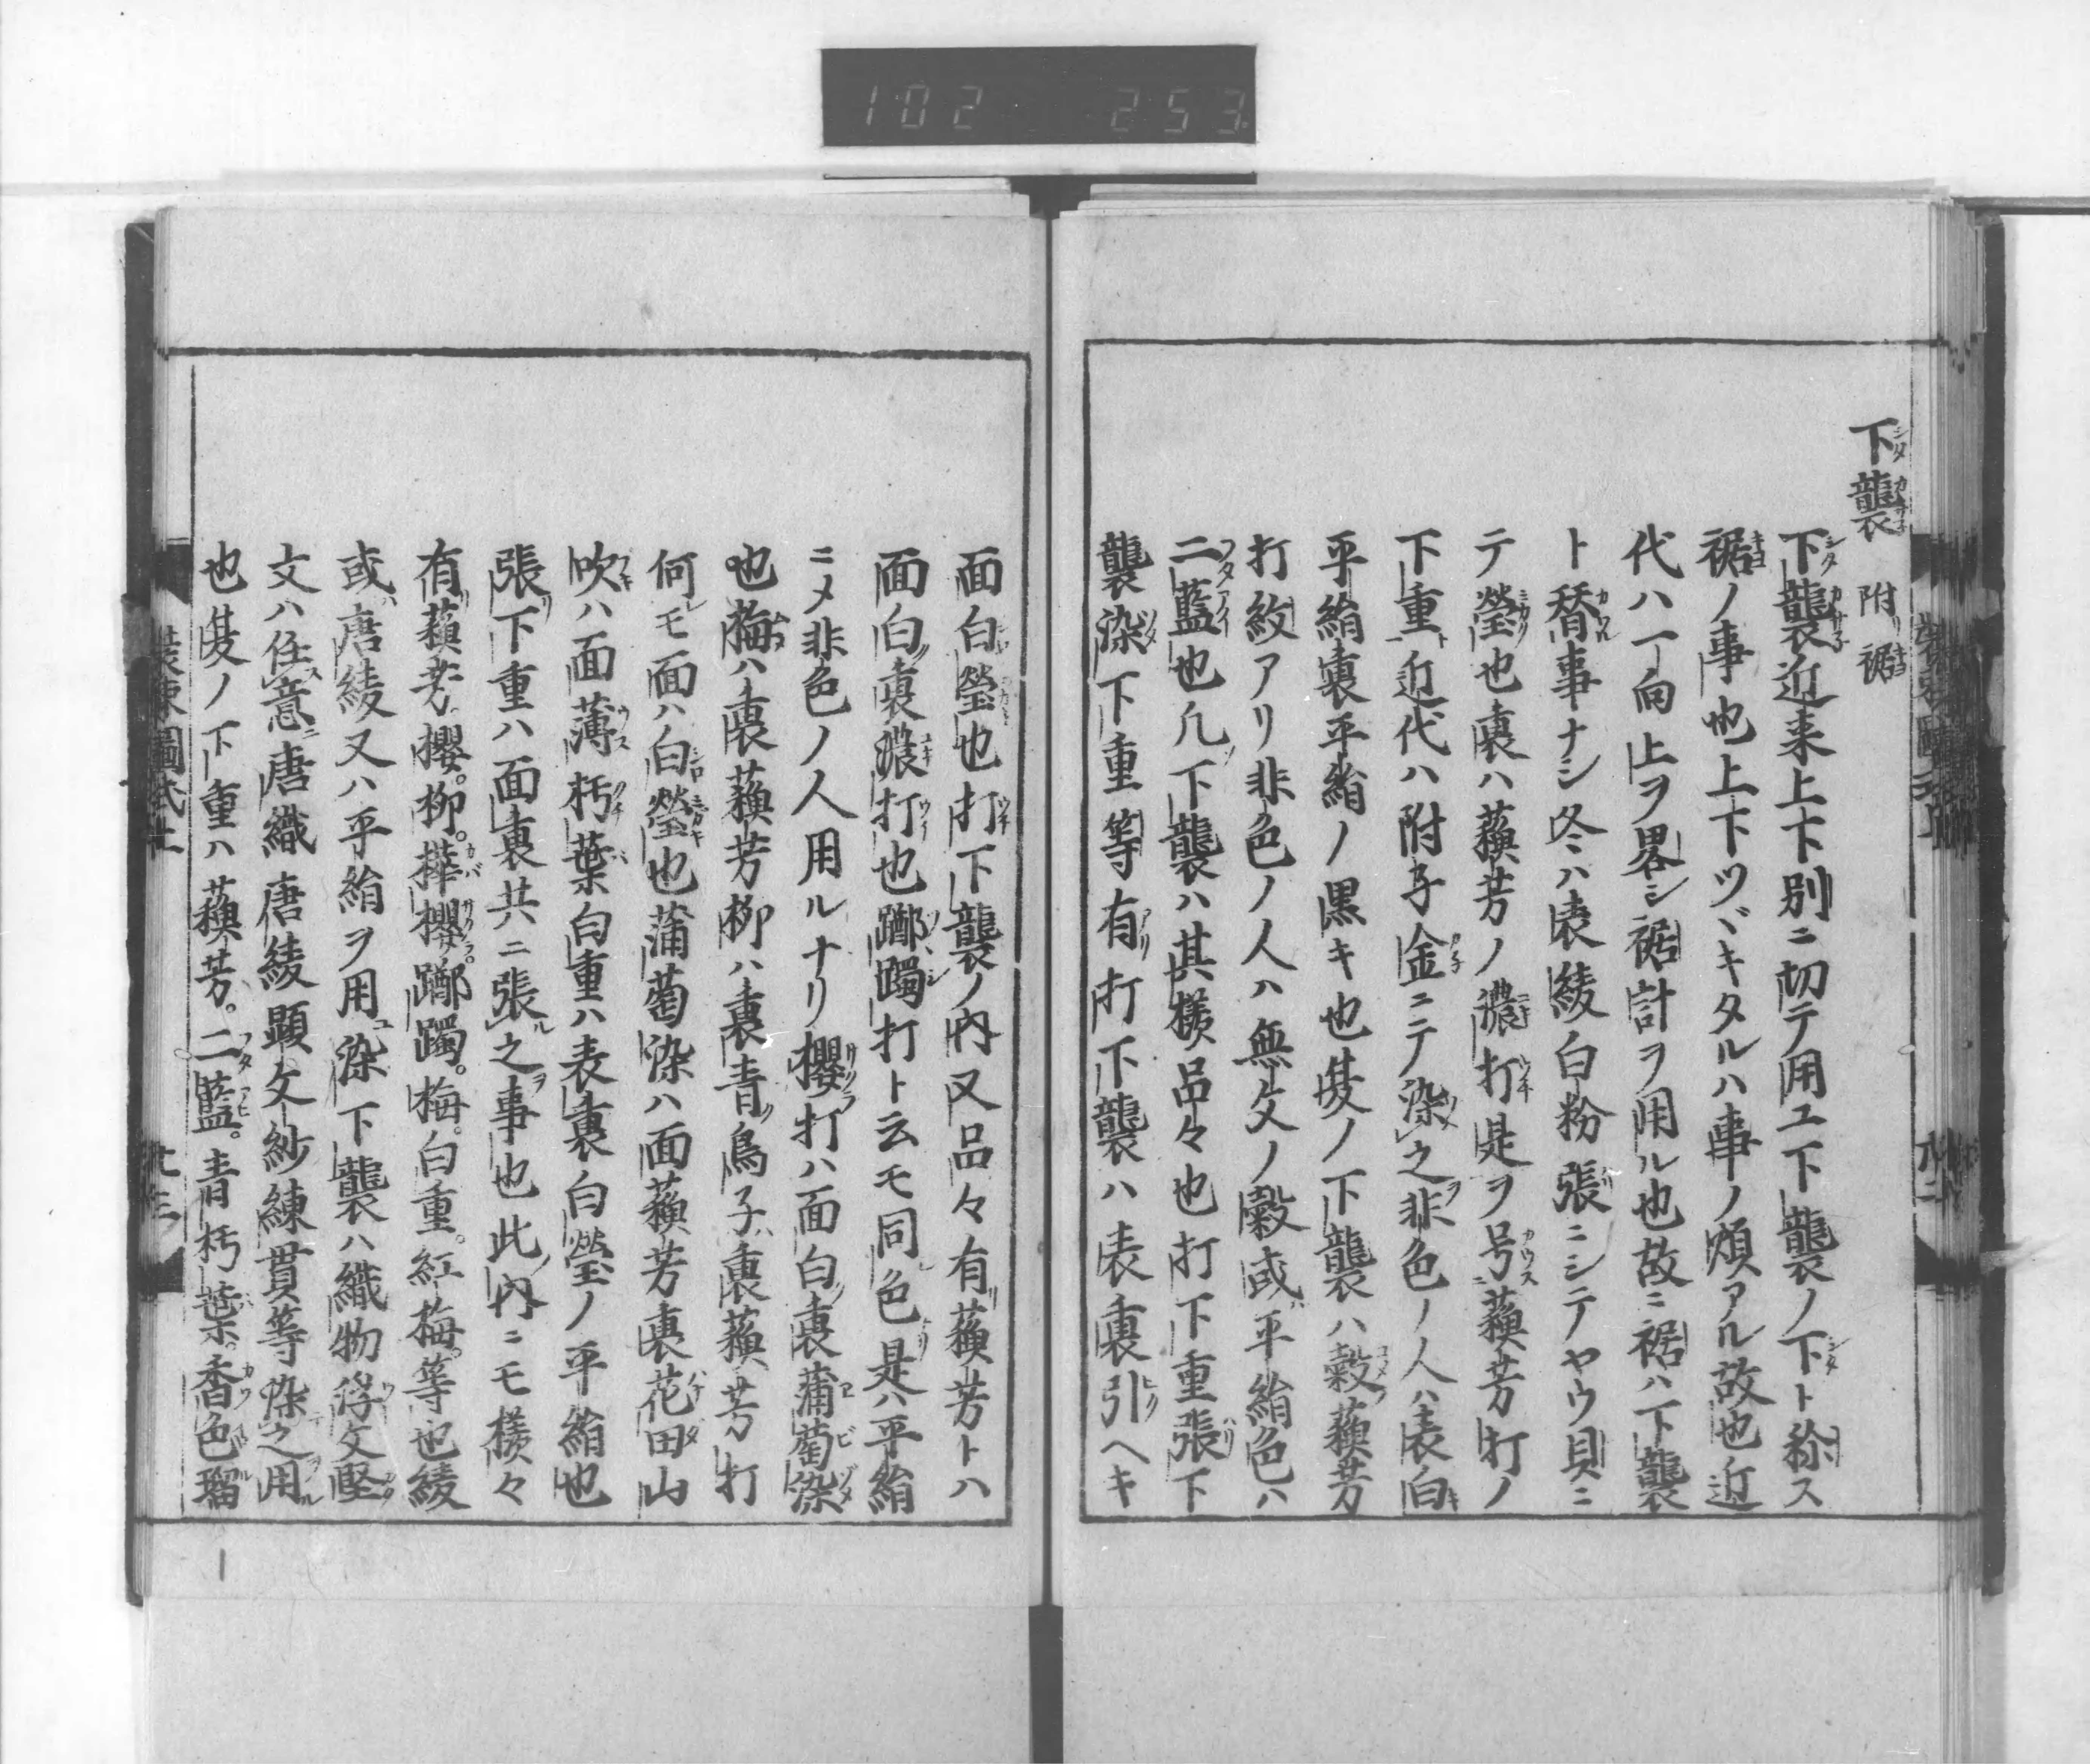 102 253
下襲 附裾
下襲近来上下別ニ切テ用ユ下襲ノ下ト称ス
裾ノ事也上下ツヾキタルハ事ノ煩アル故也近
代ハ一向上ヲ畧シ裾計ヲ用ル也故ニ裾ハ下襲
ト替事ナシ冬ハ表綾白粉張ニシテヤウ貝ニ
テ瑩也裏ハ蘓芳ノ濃打是ヲ号蘓芳打ノ
下重ト近代ハ附子金ニテ染之非色ノ人ハ表白
平絹裏平絹ノ黒キ也夏ノ下襲ハ縠蘓芳
打紋アリ非色ノ人ハ無文ノ縠或平絹色ハ
二藍也凡下襲ハ其様品々也打下重張下
襲染下重等有打下襲ハ表裏引ヘキ
面白瑩也打下襲ノ内又品々有蘓芳トハ
面白裏濃打也躑躅打ト云モ同色是ハ平絹
ニメ非色ノ人用ルナリ櫻打ハ面白裏蒲萄染
也梅ハ裏蘓芳柳ハ裏青鳥子ハ裏蘓芳打
何モ面ハ白瑩也蒲萄染ハ面蘓芳裏花田山
吹ハ面薄朽葉白重ハ表裏白瑩ノ平絹也
張下重ハ面裏共ニ張之事也此内ニモ様々
有蘓芳。櫻。柳。樺櫻。躑躅。梅。白重。紅梅。等也綾
或唐綾又ハ平絹ヲ用染下襲ハ織物浮文堅
文ハ任意唐織唐綾顕文紗練貫等染之用
也夏ノ下重ハ蘓芳。二藍。青朽葉。香色瑠
装束圖式上